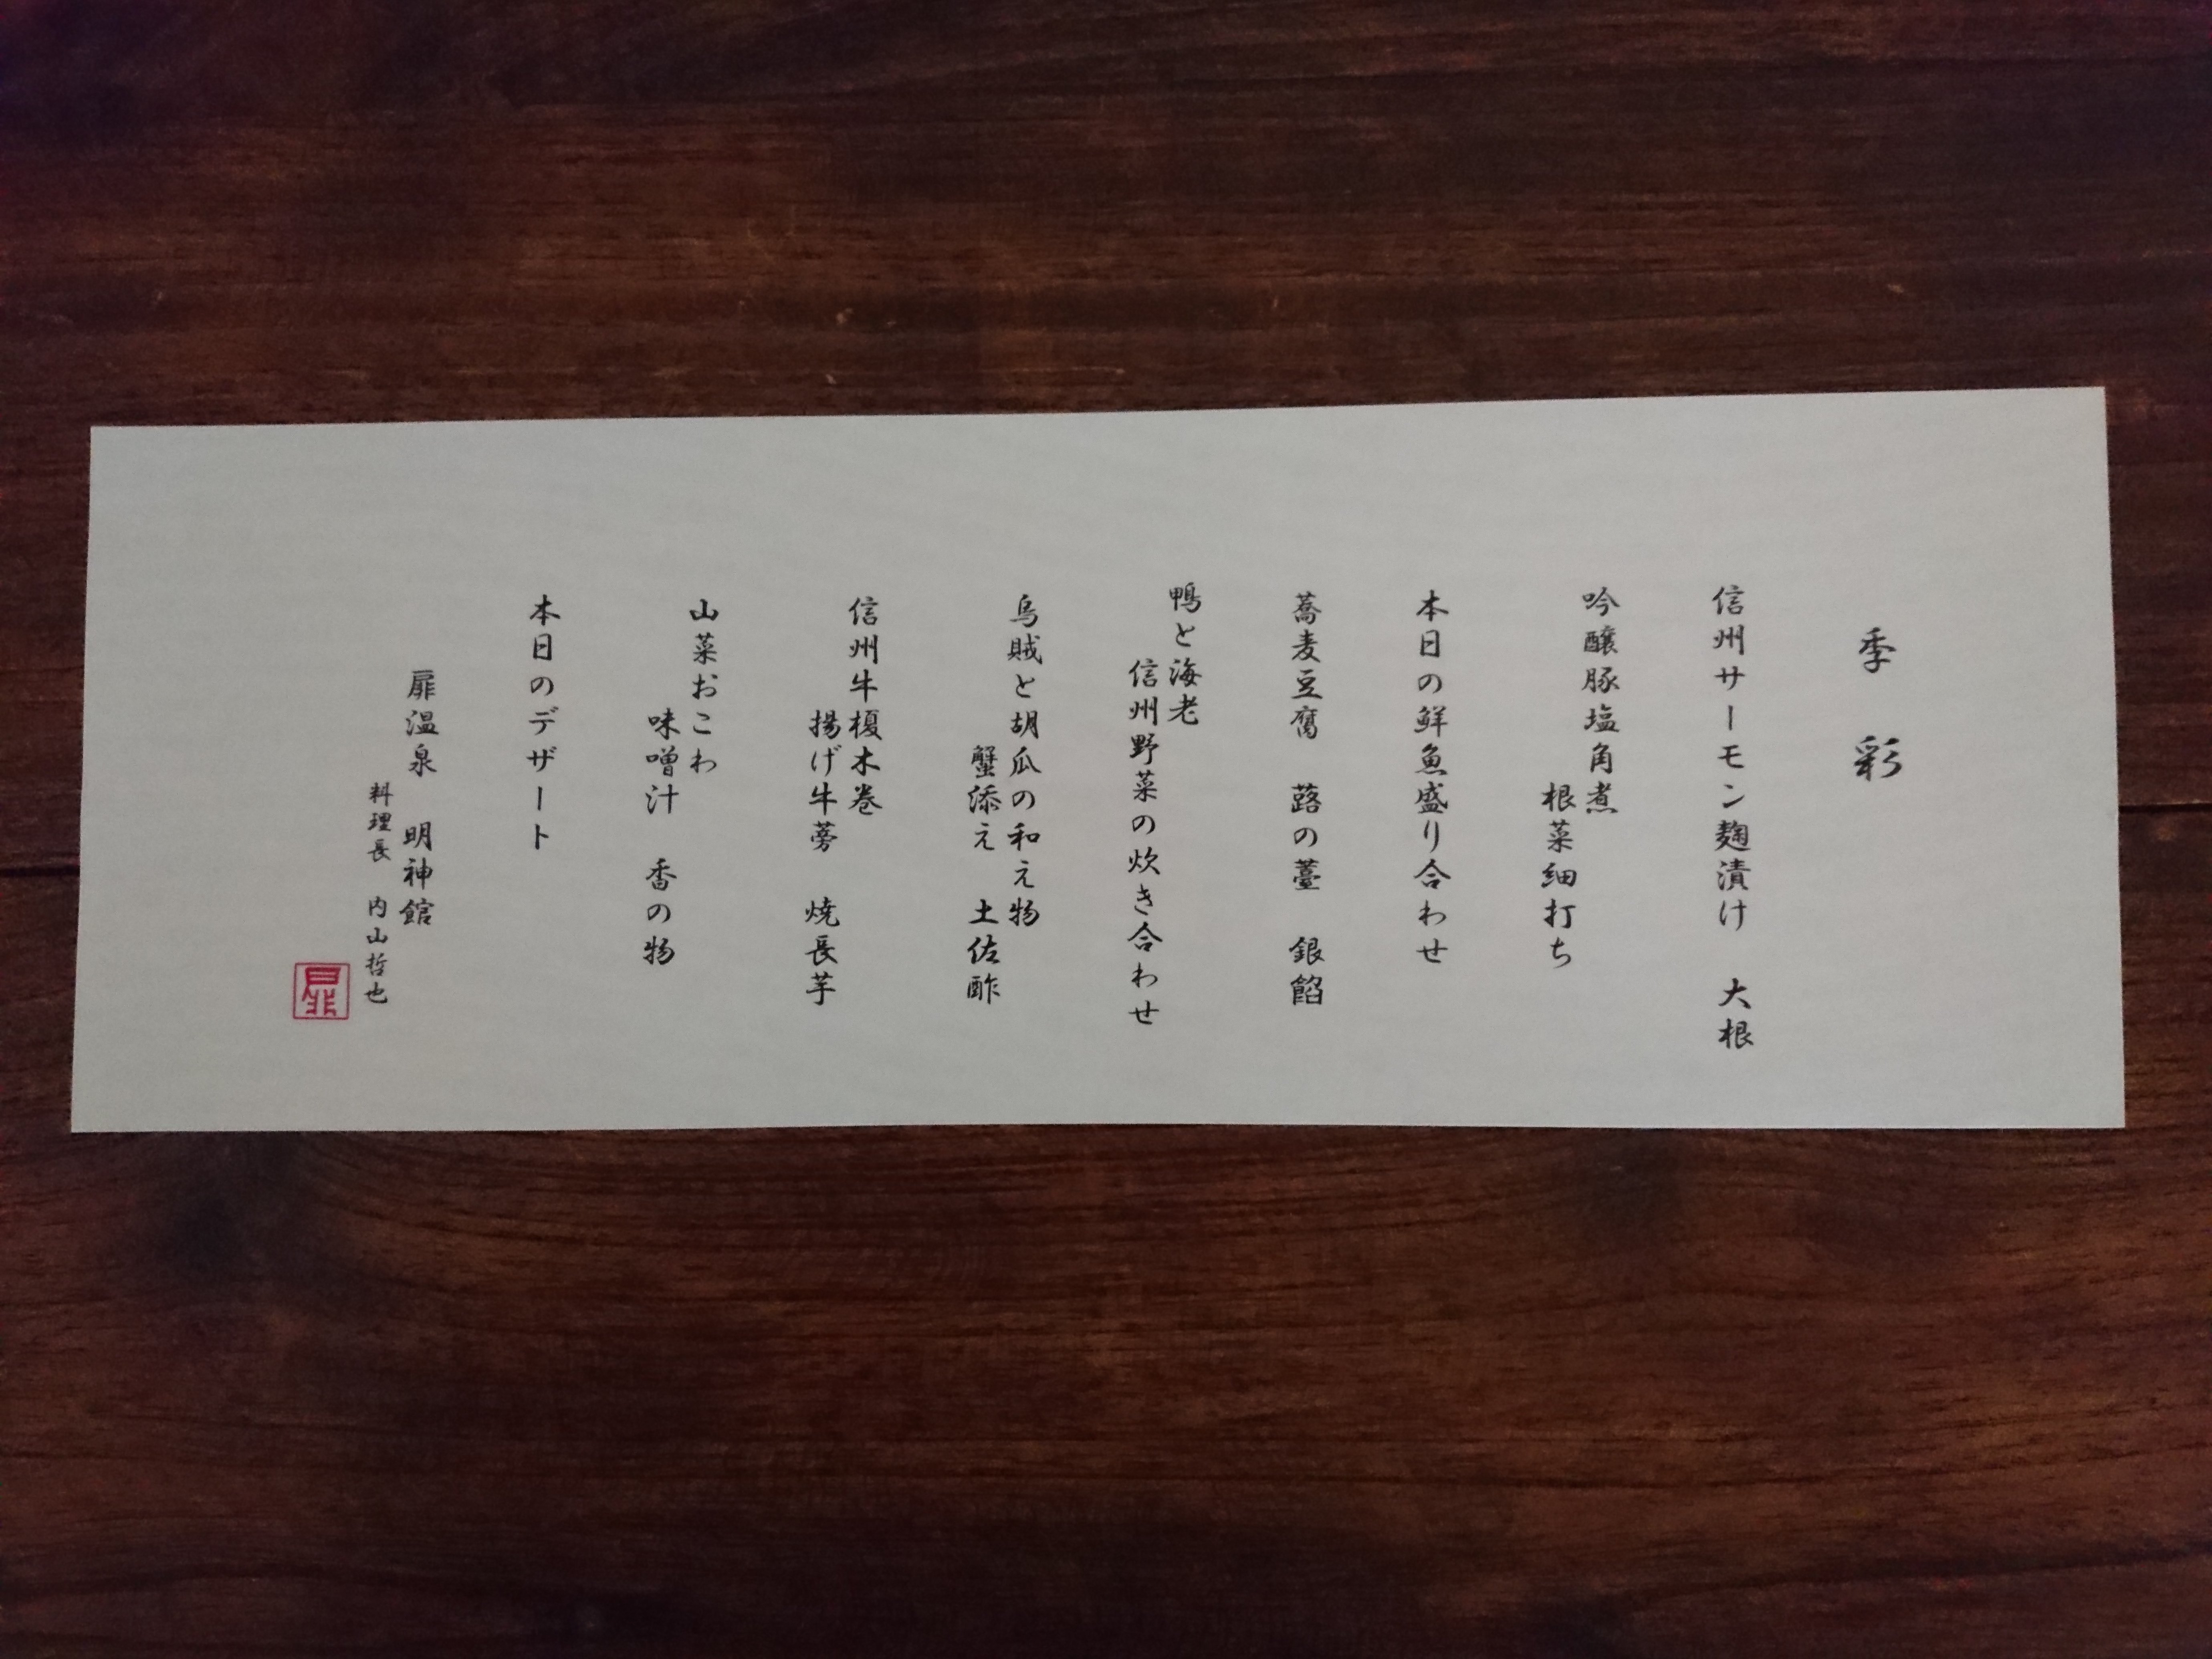 季 彩
信州サーモン麹漬け 大根
吟醸豚塩角煮
根菜細打ち
本日の鮮魚盛り合わせ
蕎麦豆腐 蕗の薹 銀餡
鴨と海老
信州野菜の炊き合わせ
烏賊と胡瓜の和え物
蟹添え 土佐酢
信州牛榎木巻
揚げ牛蒡 焼長芋
山菜おこわ
味噌汁 香の物
本日のデザート
扉温泉 明神館
料理長 内山哲也
扉